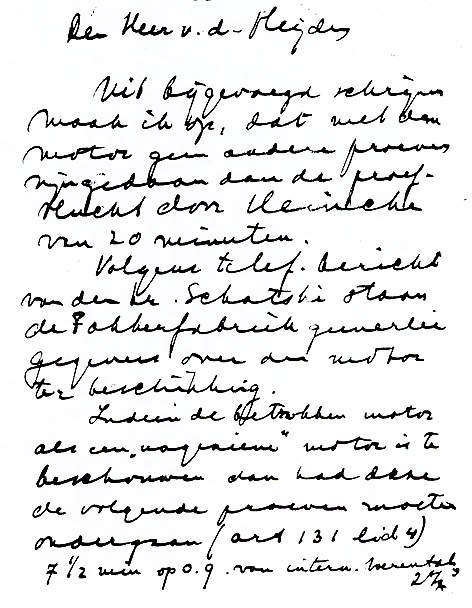 Den Heer v. d. Heijden
Uit bijgevoegd schrijven
maak ik op, dat met den
motor geen andere proeven
zijn gedaan dan de proef-
vlucht door Meinecke
van 20 minuten.
Volgens telef. bericht
van den hr. Schatzki staan
de Fokkerfabriek generlei
gegevens over den motor
ter beschikking.
Indien de betrokken motor
als een „nagenieuw" motor is te
beschouwen dan had deze
de volgende proeven moeten
ondergaan (art 131 lid 4)
7 1/2 min op o.g. van intern.